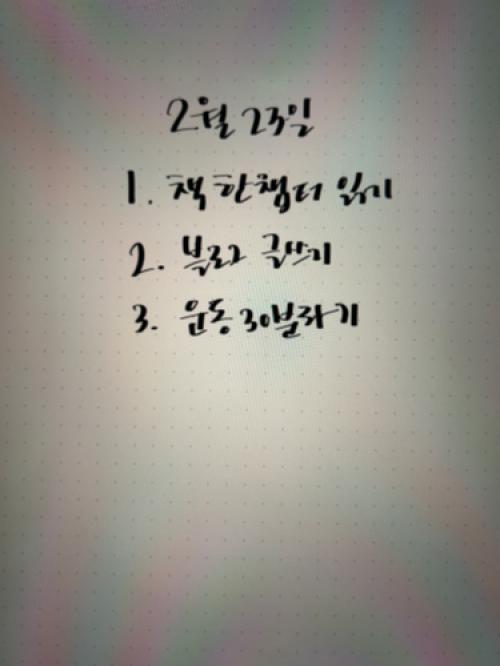 2월 23일
1. 책 한챕터 읽기
2. 블로그 글쓰기
3. 운동 30분하기